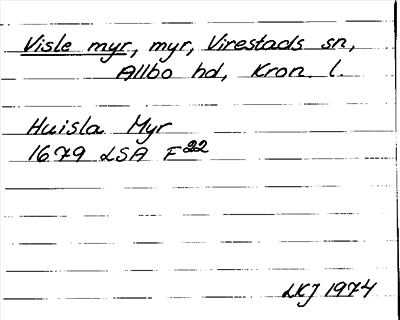 Visle myr, myr, Virestads sn,
Allbo hd, Kron. l.
Huisla Myr
1679 LSA F22
LKJ 1974